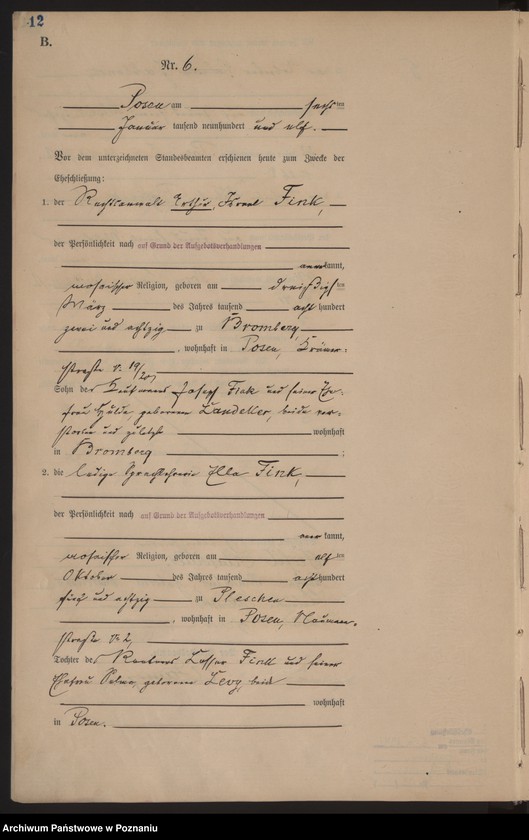 12
B.
Nr. 6.
Posen am sechsten
Januar tausend neunhundert und elf.
Vor dem unterzeichneten Standesbeamten erschienen heute zum Zwecke der
Eheschließung:
1. der Rechtsanwalt Fink,
der Persönlichkeit nach auf Grund der Aufgebotsverhandlungen
kannt,
mosaischer Religion, geboren am dreißigsten
März des Jahres tausend acht hundert
zwei und achtzig zu Bromberg,
, wohnhaft in Posen,
straße No 19/20,
Sohn des Kaufmanns Josef Fink und seiner Ehe-
frau Hulda, geborenen beide ver-
storben und zuletzt wohnhaft
in Bromberg ;
2. die ledige Sprachlehrerin Ella Fink,
der Persönlichkeit nach auf Grund der Aufgebotsverhandlungen
kannt,
mosaischer Religion, geboren am elften
Oktober des Jahres tausend acht hundert
fünf und achtzig zu Pleschen
, wohnhaft in Posen, Naumann-
straße No 2,
Tochter des Rentners Fink und seiner
Ehefrau geborenen Levy, beide
wohnhaft
in Posen.
Archiwum Państwowe w Poznaniu